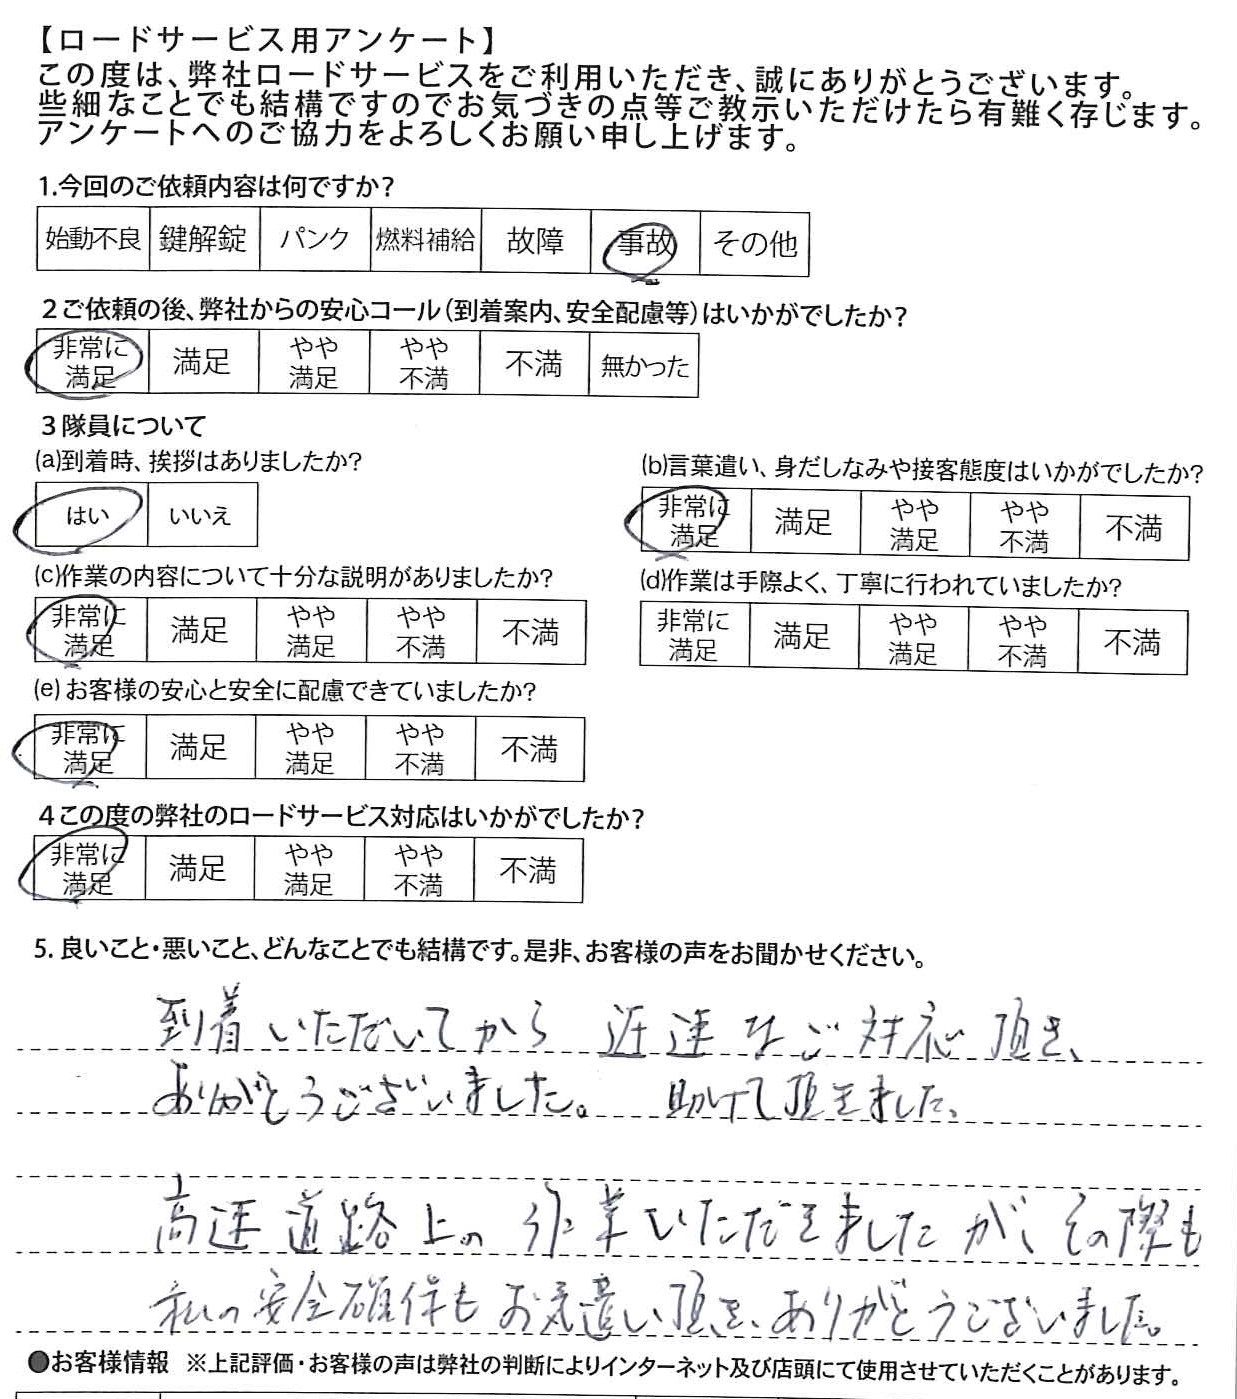 【ロードサービス用アンケート】
この度は、弊社ロードサービスをご利用いただき、誠にありがとうございます。
些細なことでも結構ですのでお気づきの点等ご教示いただけたら有難く存じます。
アンケートへのご協力をよろしくお願い申し上げます。
1.今回のご依頼内容は何ですか?
始動不良 鍵解錠 パンク 燃料補給 故障 事故 その他
2ご依頼の後、弊社からの安心コール(到着案内、安全配慮等)はいかがでしたか?
非常に満足 満足 やや満足 やや不満 不満 無かった
3隊員について
(a)到着時、挨拶はありましたか?
はい いいえ
(b)言葉遣い、身だしなみや接客態度はいかがでしたか?
非常に満足 満足 やや満足 やや不満 不満
(c)作業の内容について十分な説明がありましたか?
非常に満足 満足 やや満足 やや不満 不満
(d)作業は手際よく、丁寧に行われていましたか?
非常に満足 満足 やや満足 やや不満 不満
(e)お客様の安心と安全に配慮できていましたか?
非常に満足 満足 やや満足 やや不満 不満
4この度の弊社のロードサービス対応はいかがでしたか?
非常に満足 満足 やや満足 やや不満 不満
5.良いこと・悪いこと、どんなことでも結構です。是非、お客様の声をお聞かせください。
到着いただいてから 迅速なご対応頂き、
ありがとうございました。 助けて頂きました。
高速道路上の作業いただきましたが、その際も
私の安全確保もお気遣い頂き、ありがとうございました。
●お客様情報 ※上記評価・お客様の声は弊社の判断によりインターネット及び店頭にて使用させていただくことがあります。